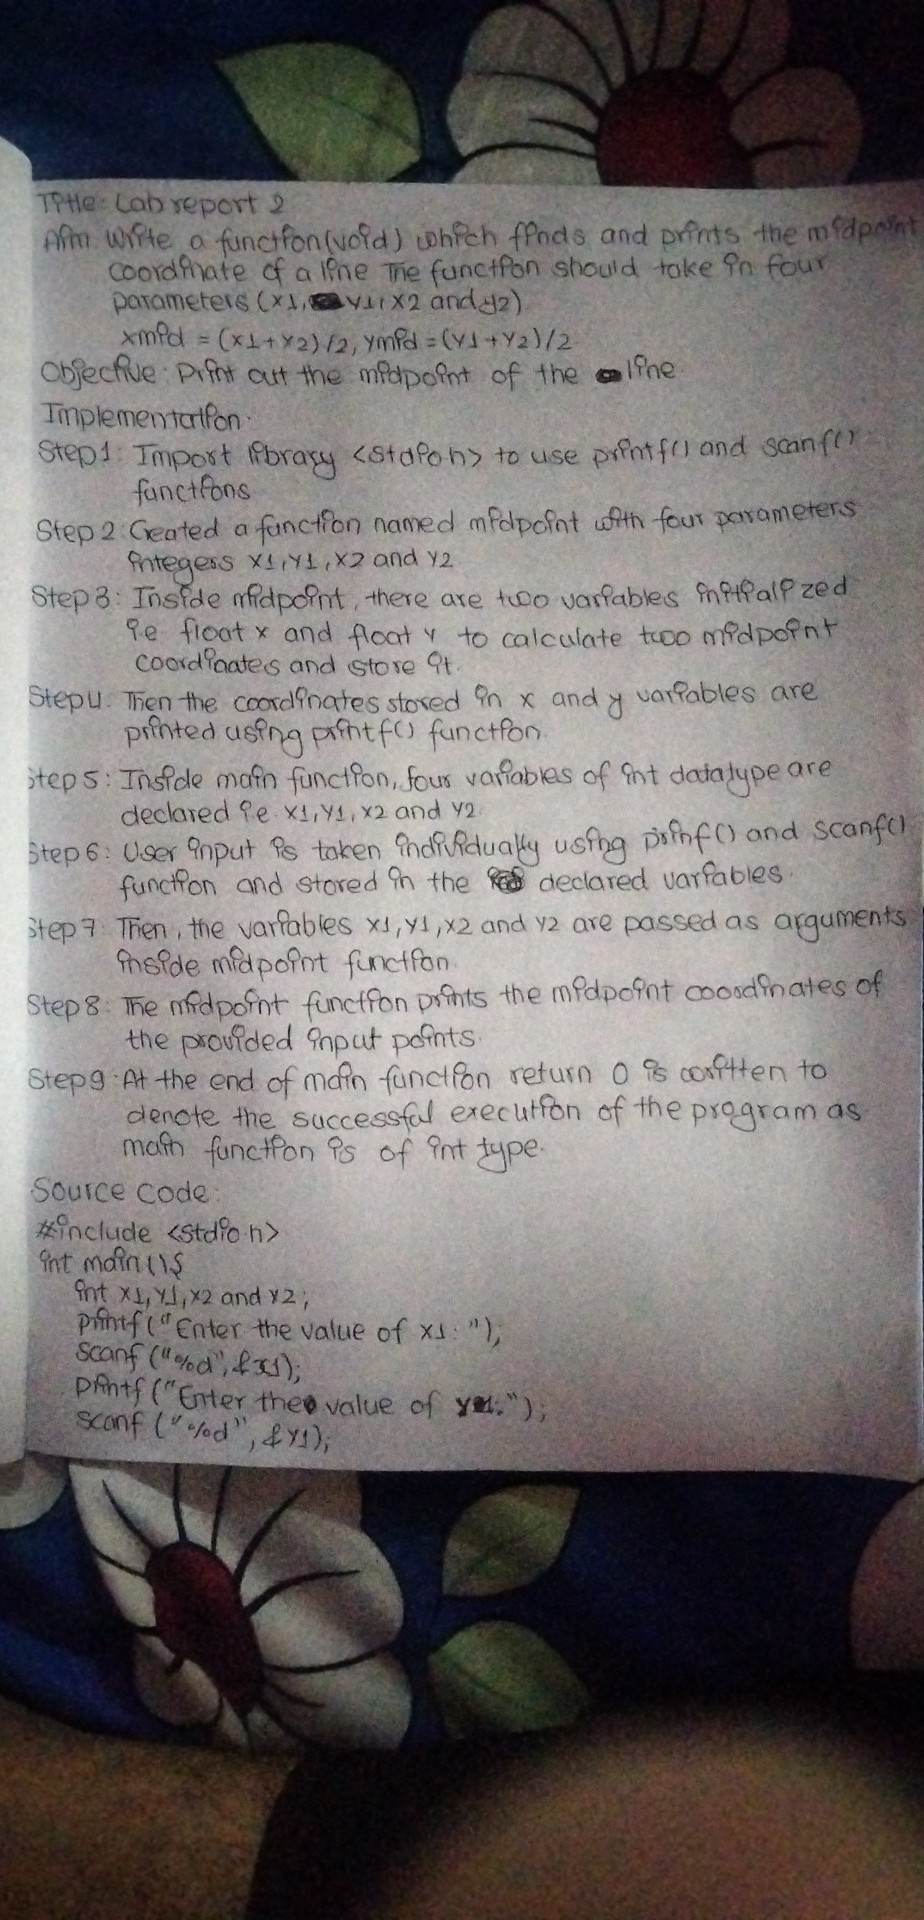 Title: Lab report 2
Aim: Write a function(void) which finds and prints the midpoint
coordinate of a line The function should take in four
parameters (x1, y1, x2 and y2)
xmid = (x1+x2)/2, ymid = (y1+y2)/2
Objective: Print out the midpoint of the line
Implementation:
Step1: Import library <stdio.h> to use printf() and scanf()
functions
Step 2: Created a function named midpoint with four parameters
integers x1, y1, x2 and y2
Step 3: Inside midpoint, there are two variables initialized
ie float x and float y to calculate two midpoint
coordinates and store it.
Step4: Then the coordinates stored in x and y variables are
printed using printf() function.
Step 5: Inside main function, four variables of int datatype are
declared ie. x1, y1, x2 and y2.
Step 6: User input is taken individually using prinf() and scanf()
function and stored in the declared variables.
Step 7: Then, the variables x1, y1, x2 and y2 are passed as arguments
inside midpoint function.
Step 8: The midpoint function prints the midpoint coordinates of
the provided input points.
Step 9: At the end of main function return 0 is written to
denote the successful execution of the program as
main function is of int type.
Source code:
#include <stdio.h>
int main(){
int x1, y1, x2 and y2;
printf("Enter the value of x1: ");
scanf ("%d", &x1);
printf ("Enter the value of y1:");
scanf ("%d", &y1);